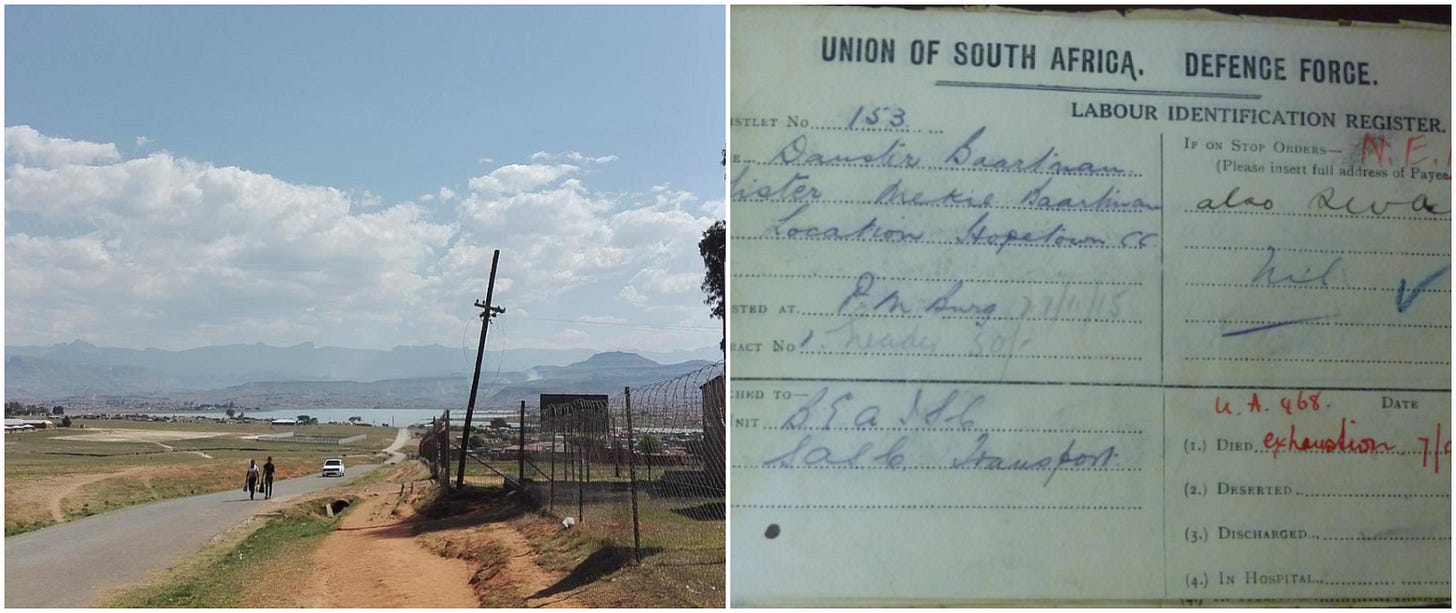 UNION OF SOUTH AFRICA. DEFENCE FORCE.
LABOUR IDENTIFICATION REGISTER.
ISTLET NO 153
E Danster Baartman
ister Mekie Baartman
Location Hopetown CC
STED AT P. M Burg 27/11/15
RACT NO 1. leader 50/-
CHED TO—
NIT B E A
S A S C Transport
IF ON STOP ORDERS— N.E.
(Please insert full address of Payee
also
nil
U. A. 468. DATE
(1.) DIED exhaustion 7/
(2.) DESERTED
(3.) DISCHARGED
(4.) IN HOSPITAL